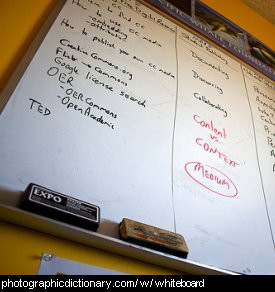 How to
- embedding CC media
- attribution
How to publish your own CC media
Creative Commons.org
Flickr → Commons
Google license search
OER
- OER Commons
- Open Academic
TED
Documenting
Discovering
Collaborating
Content
vs.
CONTEXT
MEDIUM
EXPO
photographicdictionary.com/w/whiteboard